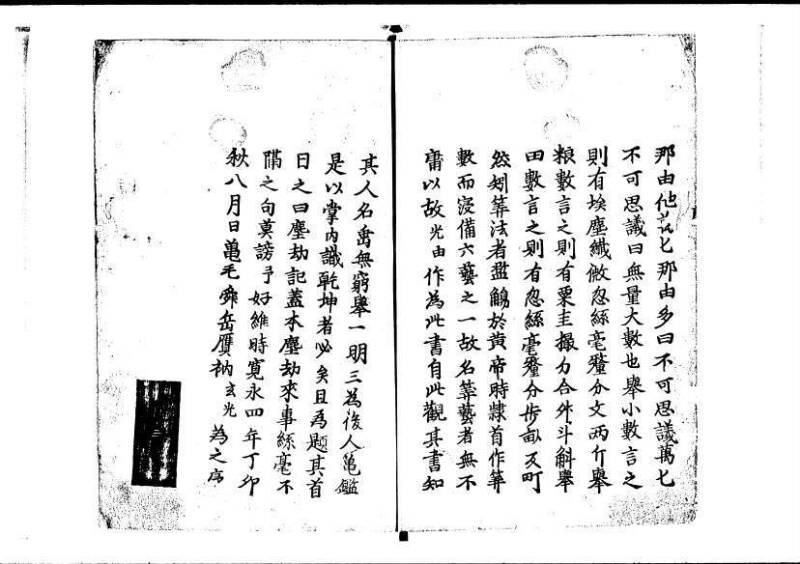 那由他萬〻那由多曰不可思議萬〻
不可思議曰無量大數也舉小數言之
則有埃塵纖微忽絲毫釐分文兩斤舉
粮數言之則有粟圭撮勺合升斗斛舉
田數言之則有忽絲毫釐分步畝及町
然矧筭法者盡觴於黃帝時隸首作筭
數而寖備六藝之一故名筭藝者無不
需以故光由作為此書自此觀其書知
其人名禹無窮舉一明三為後人龜鑑
是以掌內識乾坤者必矣且為題其首
曰之曰塵劫記蓋本塵劫來事絲毫不
隔之句莫謗予好維時寬永四年丁卯
秋八月日龜毛舜岳贋衲玄光為之序